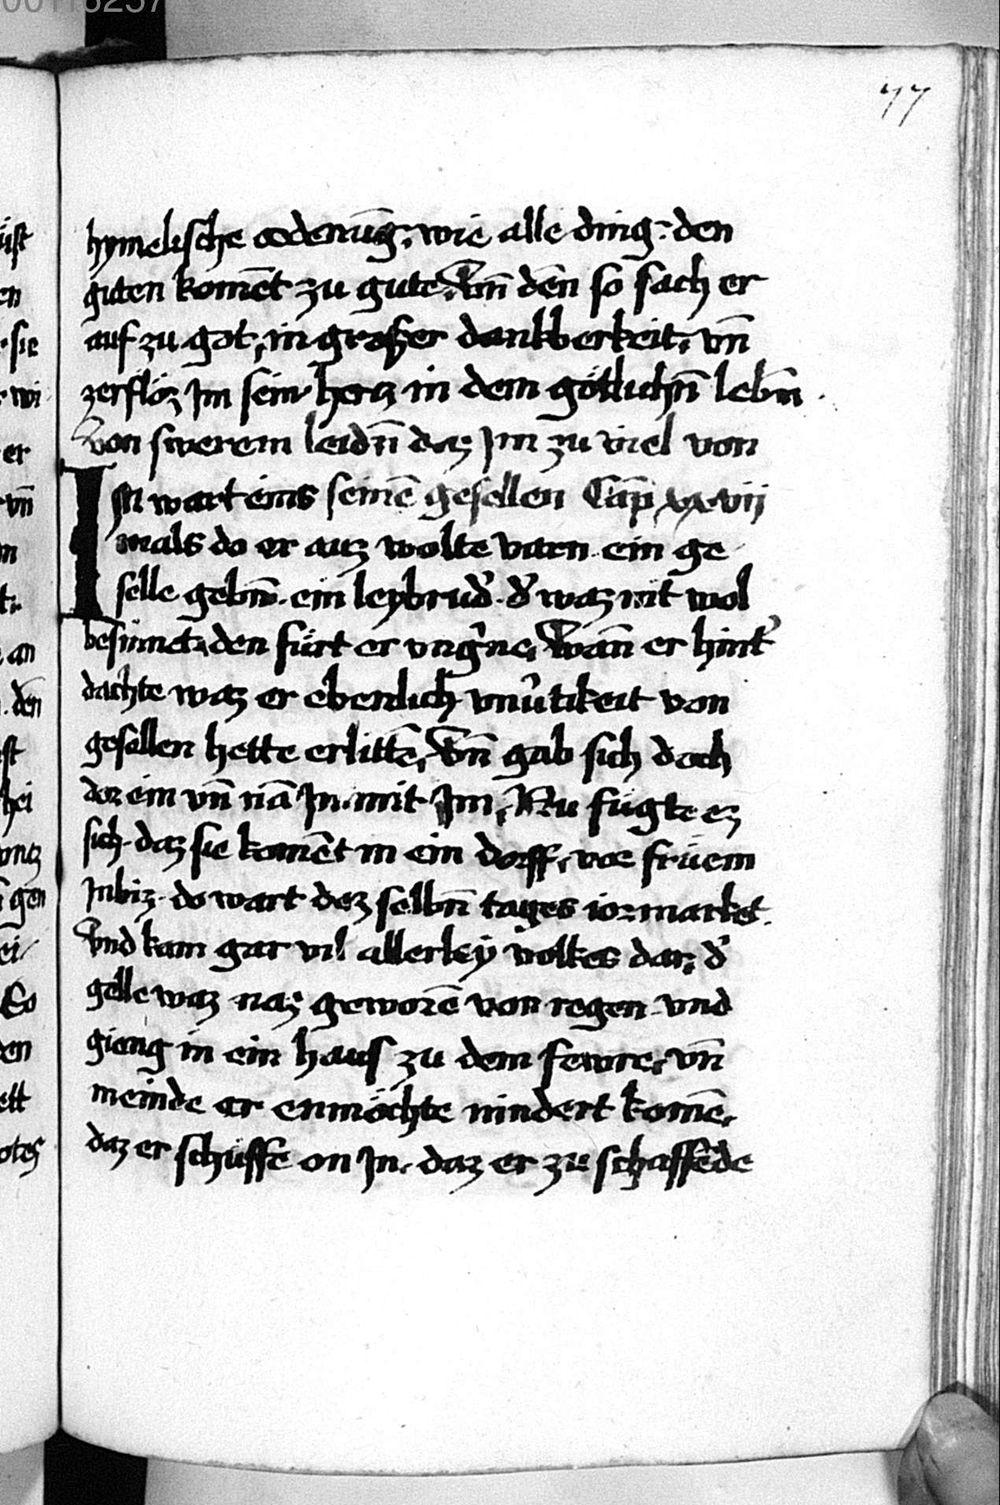 00118237
77
hymelische oꝛdenūg. wie alle ding. den
guten komēt zu gute. Vn̄ dēn so sach er
auf zu got, in grosser dankberkeit, vn̄
zerfloz Jm sein hertz in dem götlichn̄ lebn̄
Von swerem leidn̄ daz Jm zu viel von
IN wart eins seinē gesellen Cap̄ xxvij
mals do er auz wolte varn ein ge
selle gebn̄. ein leybrud᾽. d᾽ waz nit wol
besinnet, den fürt er vng᾽ne, Wan̄ er hint᾽
dachte waz er ebenlich vnmūtikeit von
gesellen hette erlittē, Vn̄ gab sich doch
dor ein vn̄ nā Jn mit Jm, Nu fügte ez
sich daz sie komēt in ein dorff, voꝛ früem
Jnbiz do wart dez selbn̄ tages ioꝛmarket.
Vnd kam gar vil allerley volkes dar, d᾽
gelle waz naz gewoꝛē von regen vnd
gieng in ein haus zu dem fewre, vn̄
meinde er enmöchte nindert komē,
daz er schüffe on Jn. daz er zu schaffēde